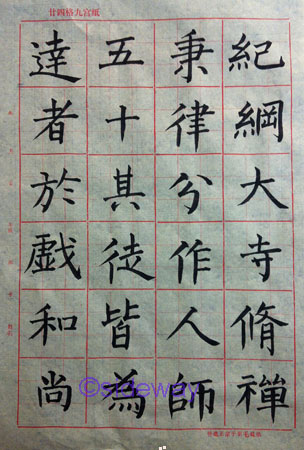 廿四格九宮紙
紀綱大寺脩禪
秉律分作人師
五十其徒皆為
達者於戲和尚
©sideway